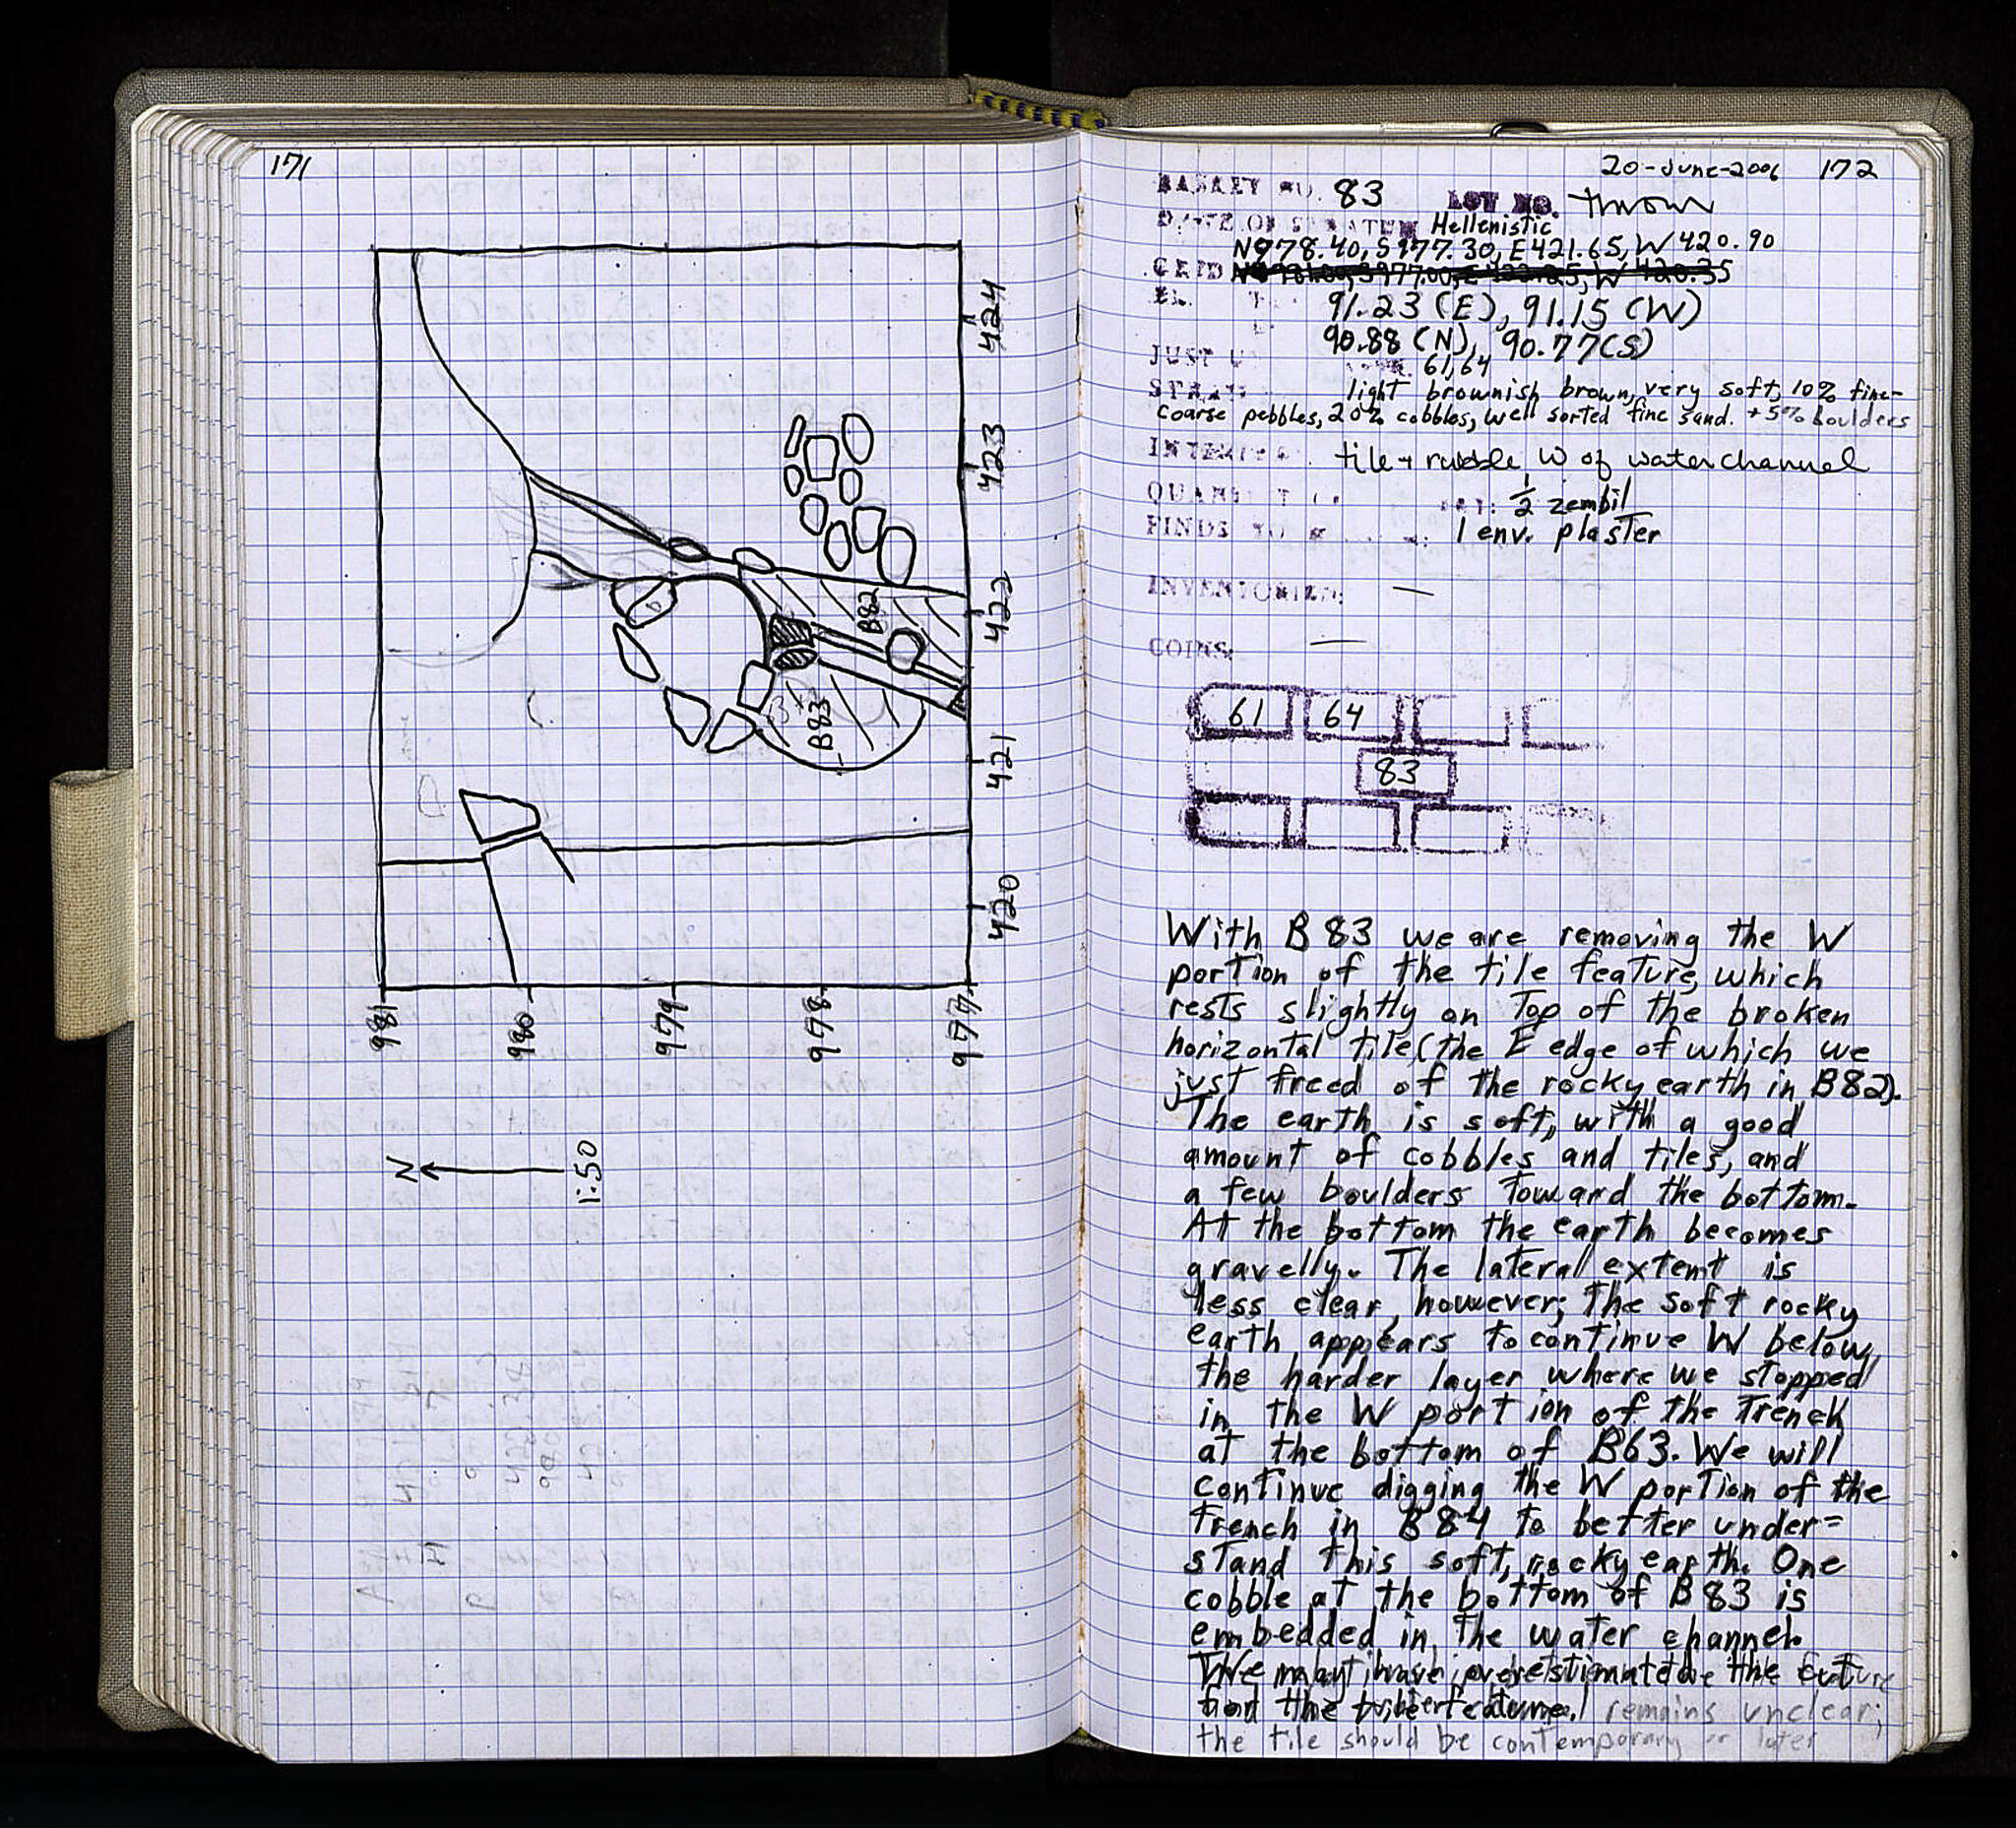 171
424
423
422
421
420
981
980
979
978
977
B82
B83
N
1:50
20-June-2006 172
BASKET NO. 83 LOT NO. thrown
DATE OF STRATUM Hellenistic
N978.40, S977.30, E421.65, W420.90
GRID
EL. 91.23 (E), 91.15 (W)
90.88 (N), 90.77 (S)
JUST U 61, 64
STRAT light brownish brown, very soft, 10% fine-
coarse pebbles, 20% cobbles, well sorted fine sand. + 5% boulders
tile + rubble W of water channel
1/2 zembil
FINDS 1 env. plaster
INVENTORIED: —
COINS: —
61 64
83
With B83 we are removing the W
portion of the tile feature, which
rests slightly on top of the broken
horizontal tile (the E edge of which we
just freed of the rocky earth in B82).
The earth is soft, with a good
amount of cobbles and tiles, and
a few boulders toward the bottom.
At the bottom the earth becomes
gravelly. The lateral extent is
less clear, however; the soft rocky
earth appears to continue W below
the harder layer where we stopped
in the W portion of the trench
at the bottom of B63. We will
continue digging the W portion of the
trench in B84 to better under=
stand this soft, rocky earth. One
cobble at the bottom of B83 is
embedded in the water channel.
the
remains unclear;
the tile should be contemporary or later